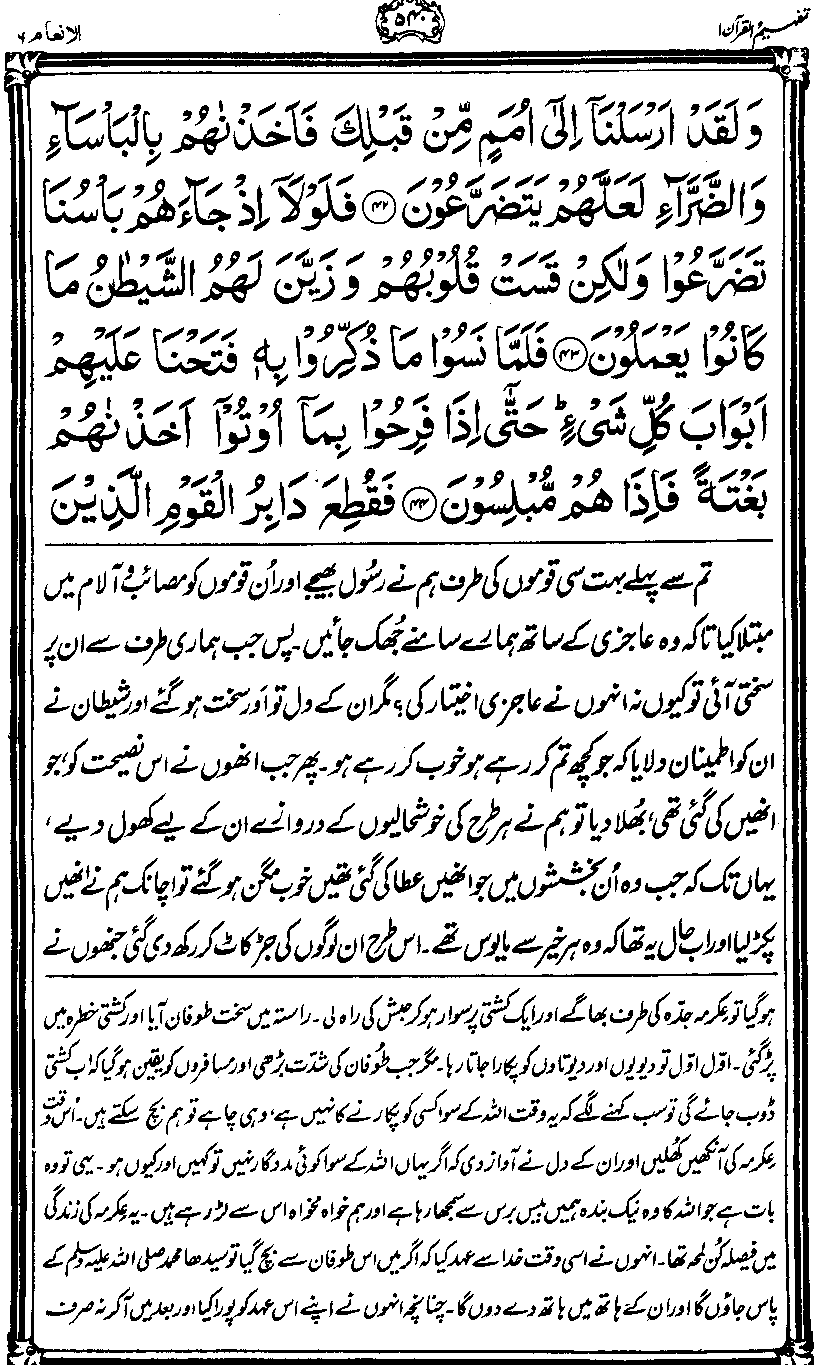 تفہیم القرآن ۱
۵۴۰
الانعام ۶
وَلَقَدْ اَرْسَلْنَآ اِلٰٓى اُمَمٍ مِّنْ قَبْلِكَ فَاَخَذْنٰهُمْ بِالْبَاْسَآءِ
وَالضَّرَّآءِ لَعَلَّهُمْ يَتَضَرَّعُوْنَ ﴿۴۲﴾ فَلَوْلَآ اِذْ جَآءَهُمْ بَاْسُنَا
تَضَرَّعُوْا وَلٰكِنْ قَسَتْ قُلُوْبُهُمْ وَزَيَّنَ لَهُمُ الشَّيْطٰنُ مَا
كَانُوْا يَعْمَلُوْنَ ﴿۴۳﴾ فَلَمَّا نَسُوْا مَا ذُكِّرُوْا بِهٖ فَتَحْنَا عَلَيْهِمْ
اَبْوَابَ كُلِّ شَيْءٍ ؕ حَتّٰٓى اِذَا فَرِحُوْا بِمَآ اُوْتُوْٓا اَخَذْنٰهُمْ
بَغْتَةً فَاِذَا هُمْ مُّبْلِسُوْنَ ﴿۴۴﴾ فَقُطِعَ دَابِرُ الْقَوْمِ الَّذِيْنَ
تم سے پہلے بہت سی قوموں کی طرف ہم نے رسُول بھیجے اور اُن قوموں کو مصائب و آلام میں
مبتلا کیا تاکہ وہ عاجزی کے ساتھ ہمارے سامنے جُھک جائیں۔ پس جب ہماری طرف سے ان پر
سختی آئی تو کیوں نہ انہوں نے عاجزی اختیار کی؟ مگر ان کے دل تو اَور سخت ہو گئے اور شیطان نے
ان کو اطمینان دلایا کہ جو کچھ تم کر رہے ہو خوب کر رہے ہو۔ پھر جب انھوں نے اس نصیحت کو، جو
انھیں کی گئی تھی، بُھلا دیا تو ہم نے ہر طرح کی خوشحالیوں کے دروازے ان کے لیے کھول دیے،
یہاں تک کہ جب وہ اُن بخششوں میں جو انھیں عطا کی گئی تھیں خوب مگن ہو گئے تو اچانک ہم نے انھیں
پکڑ لیا اور اب حال یہ تھا کہ وہ ہر خیر سے مایوس تھے۔ اس طرح ان لوگوں کی جڑ کاٹ کر رکھ دی گئی جنھوں نے
ہو گیا تو عِکرمہ جدّہ کی طرف بھاگے اور ایک کشتی پر سوار ہو کر حبش کی راہ لی۔ راستہ میں سخت طوفان آیا اور کشتی خطرہ میں
پڑ گئی۔ اوّل اوّل تو دیویوں اور دیوتاوں کو پکارا جاتا رہا۔ مگر جب طُوفان کی شدّت بڑھی اور مسافروں کو یقین ہو گیا کہ اب کشتی
ڈوب جائے گی تو سب کہنے لگے کہ یہ وقت اللہ کے سوا کسی کو پکارنے کا نہیں ہے، وہی چاہے تو ہم بچ سکتے ہیں۔ اُس وقت
عِکرمہ کی آنکھیں کُھلیں اور ان کے دل نے آواز دی کہ اگر یہاں اللہ کے سوا کوئی مددگار نہیں تو کہیں اور کیوں ہو۔ یہی تو وہ
بات ہے جو اللہ کا وہ نیک بندہ ہمیں بیس برس سے سمجھا رہا ہے اور ہم خواہ مخواہ اس سے لڑ رہے ہیں۔ یہ عِکرمہ کی زندگی
میں فیصلہ کُن لمحہ تھا۔ انہوں نے اسی وقت خدا سے عہد کیا کہ اگر میں اس طوفان سے بچ گیا تو سیدھا محمد صلی اللہ علیہ وسلم کے
پاس جاؤں گا اور ان کے ہاتھ میں ہاتھ دے دوں گا۔ چنانچہ انہوں نے اپنے اس عہد کو پورا کیا اور بعد میں آ کر نہ صرف